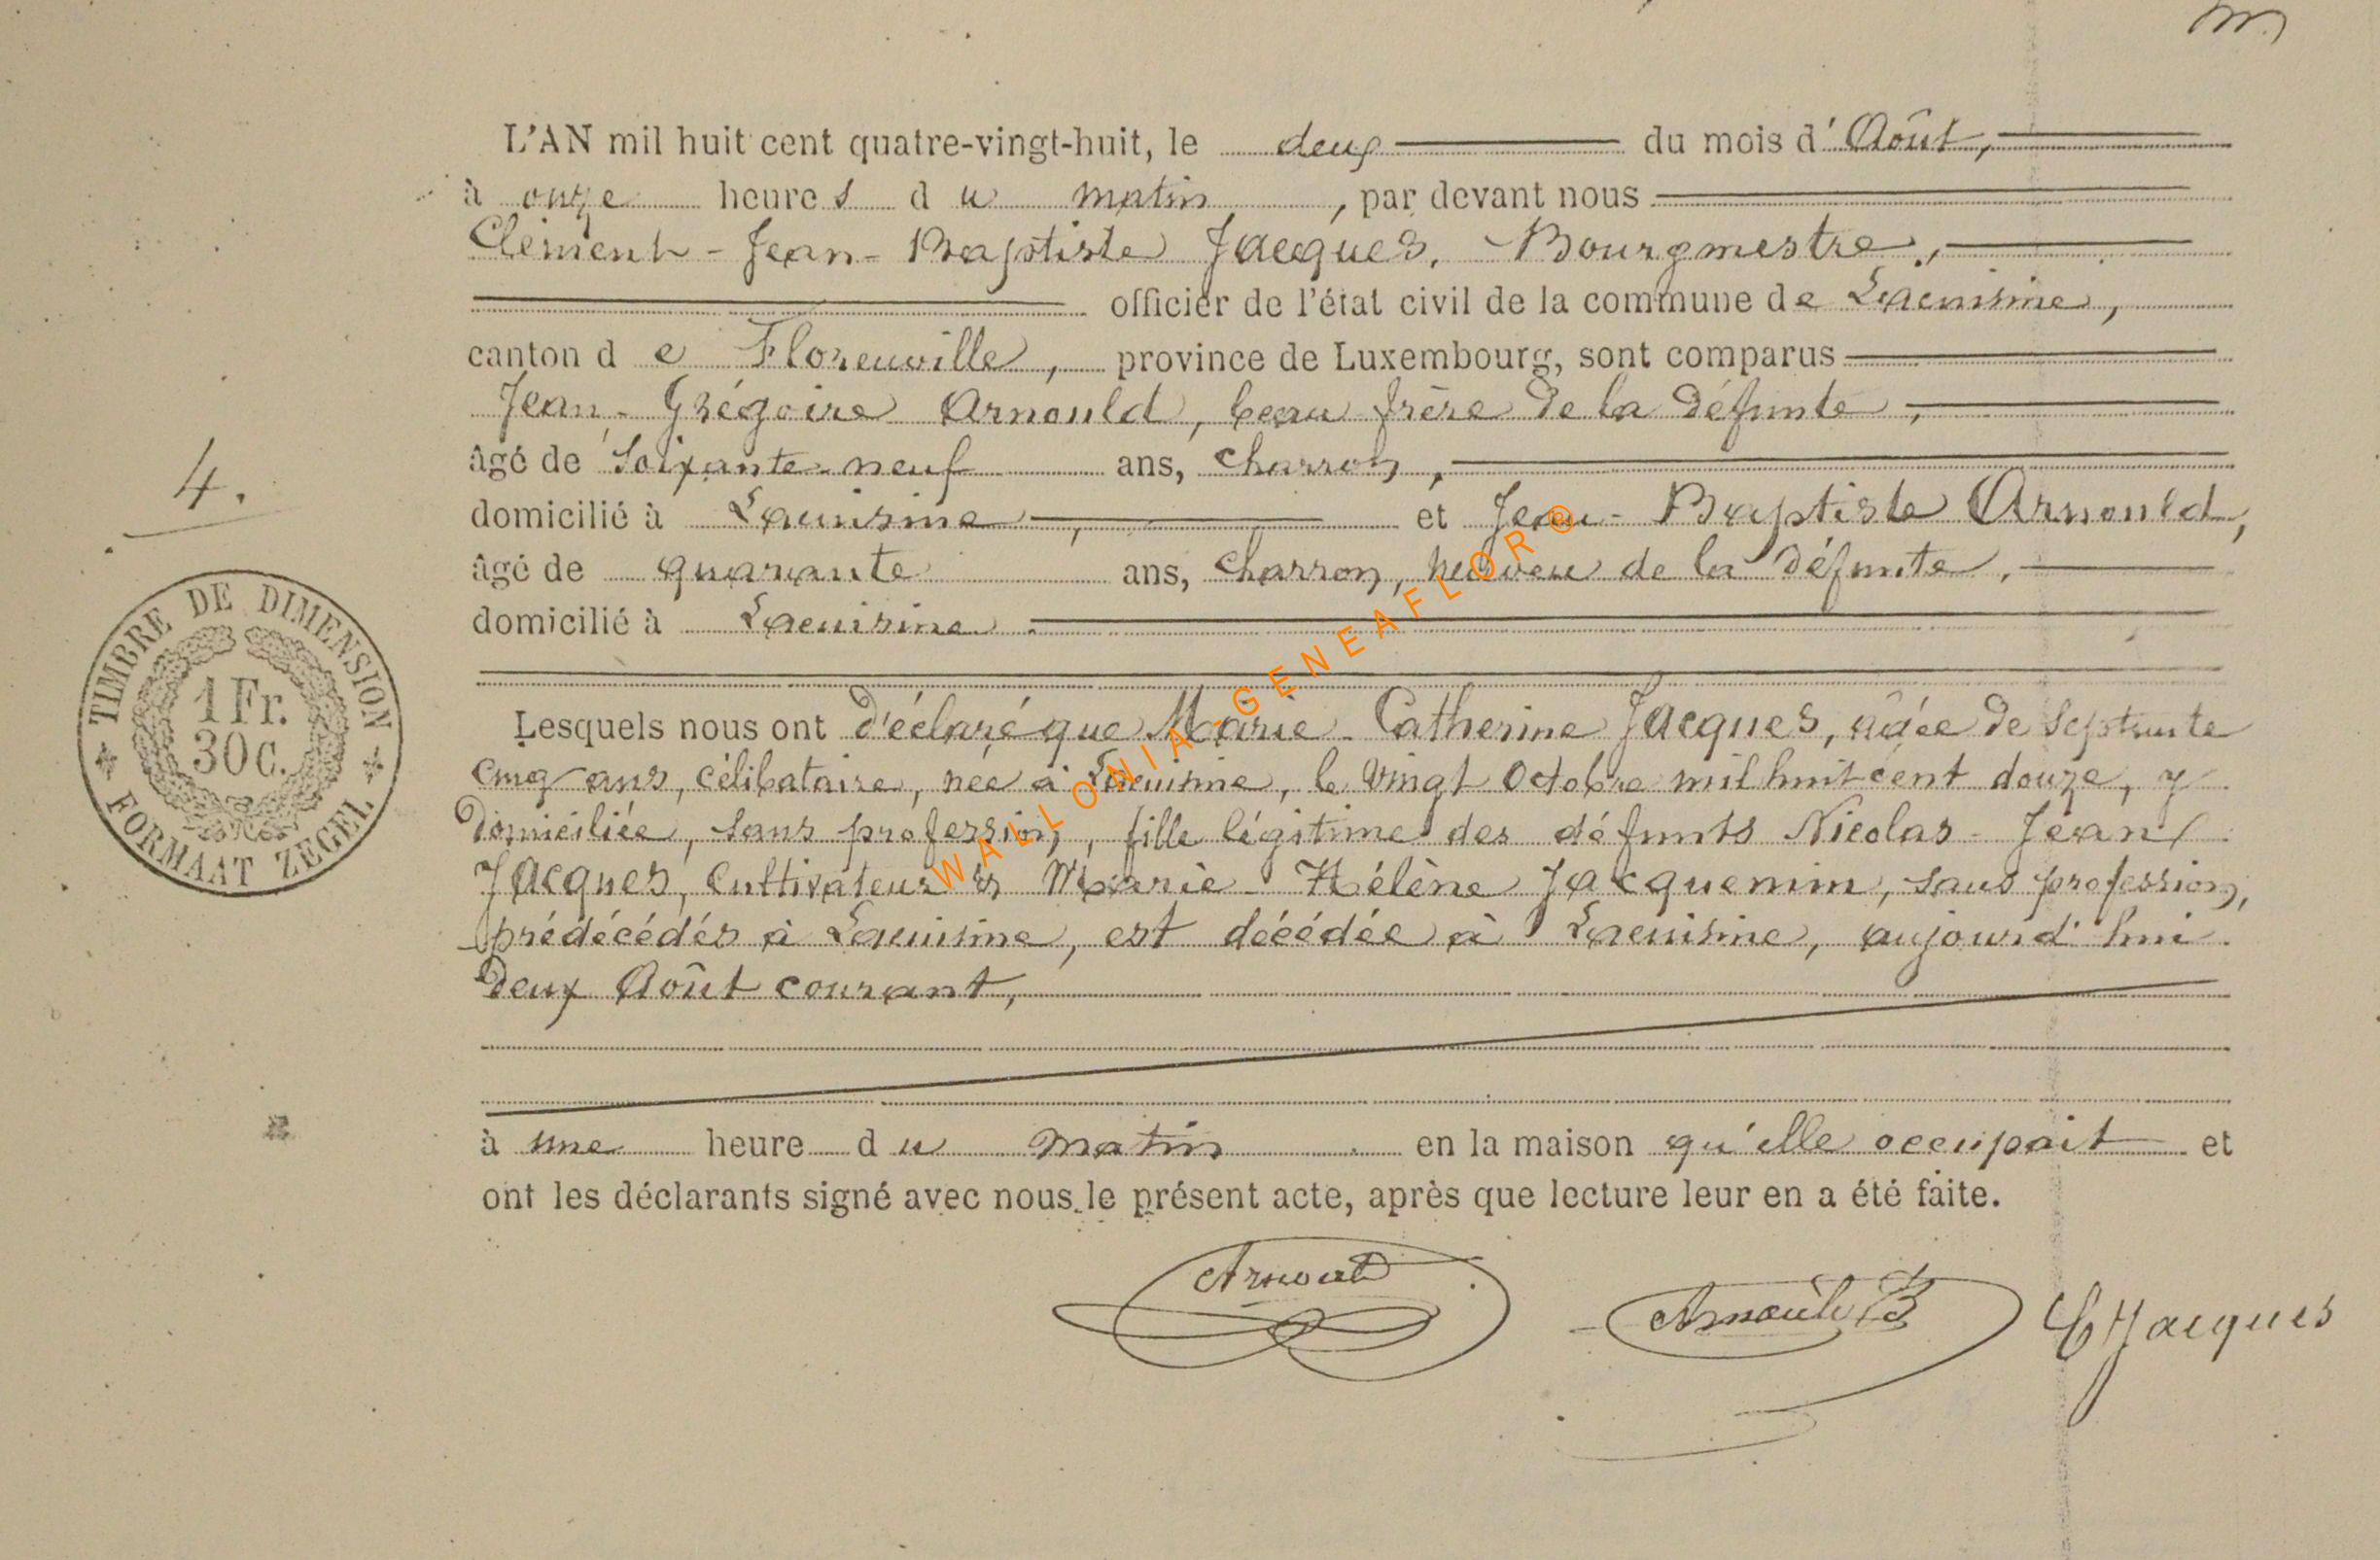 L'AN mil huit cent quatre-vingt-huit, le deux du mois d' Août,
à onze heures du matin, par devant nous
Clément-Jean-Baptiste Jacques, Bourgmestre,
officier de l'état civil de la commune de Lacuisine,
canton de Florenville, province de Luxembourg, sont comparus
Jean-Grégoire Arnould, beau frère de la défunte,
âgé de soixante-neuf ans, charron,
domicilié à Lacuisine, et Jean-Baptiste Arnould,
âgé de quarante ans, charron, neuveu de la défunte,
domicilié à Lacuisine.
4.
TIMBRE DE DIMENSION
1 Fr.
30 C.
FORMAAT ZEGEL
Lesquels nous ont déclaré que Marie-Catherine Jacques, âgée de septante
cinq ans, célibataire, née à Lacuisine, le vingt Octobre mil huit cent douze, y
domiciliée, sans profession, fille légitime des défunts Nicolas-Jean
Jacques, cultivateur & Marie-Hélène Jacquemin, sans profession,
prédécédés à Lacuisine, est décédée à Lacuisine, aujourd'hui
deux Août courant,
à une heure du matin en la maison qu'elle occupait et
ont les déclarants signé avec nous le présent acte, après que lecture leur en a été faite.
Arnould
Arnould JB
CJJacques
WALLONIA-GENEAFLOR®